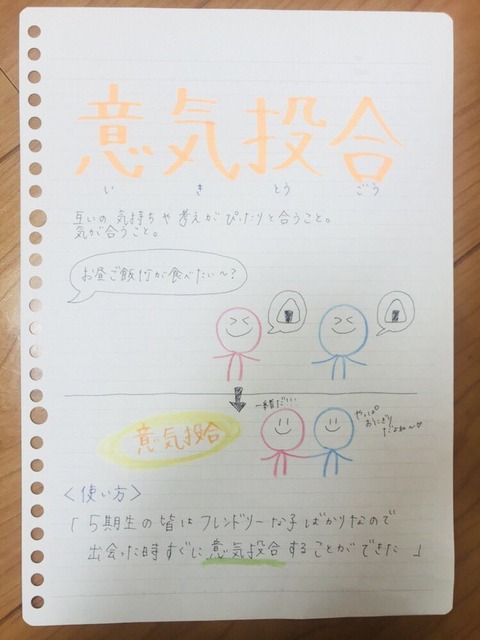 意気投合
い き とう ごう
互いの気持ちや考えがぴたりと合うこと。
気が合うこと。
お昼ご飯何が食べたい〜?
一緒だ!!!
やっぱ
おにぎり
だよね〜♡
意気投合
<使い方>
「5期生の皆はフレンドリーな子ばかりなので
出会った時すぐに意気投合することができた」